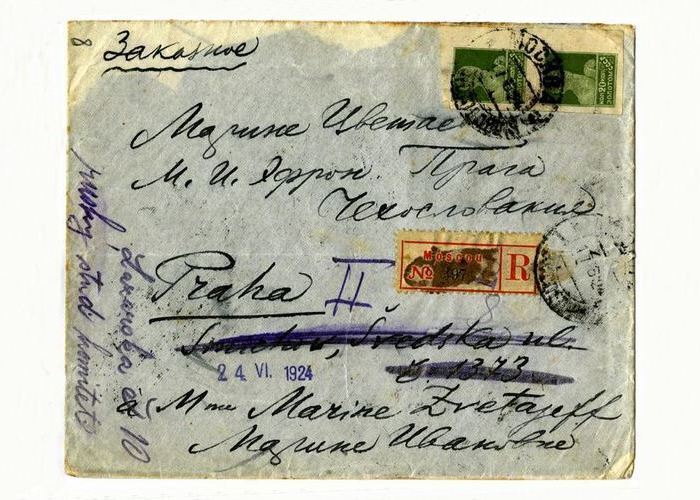 8
Заказное
20 КОП. ЗОЛОТОМ
Марине Цветае
М. И. Эфрон. Прага
Чехословакия
MOSCOU
No 197 R
Praha II
8
Smichov, Švedska ul.
č 1373
24. VI. 1924
à Mme Marine Zvetajeff
Марине Ивановне
10
ruský stud komitét